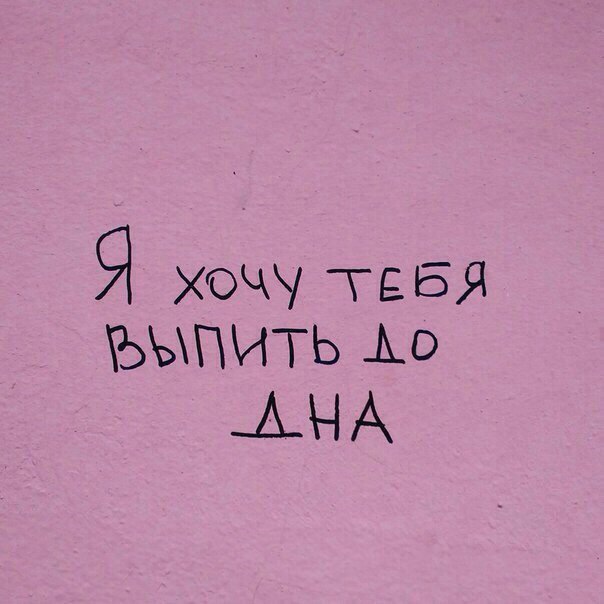 Я хочу тебя
выпить до
дна